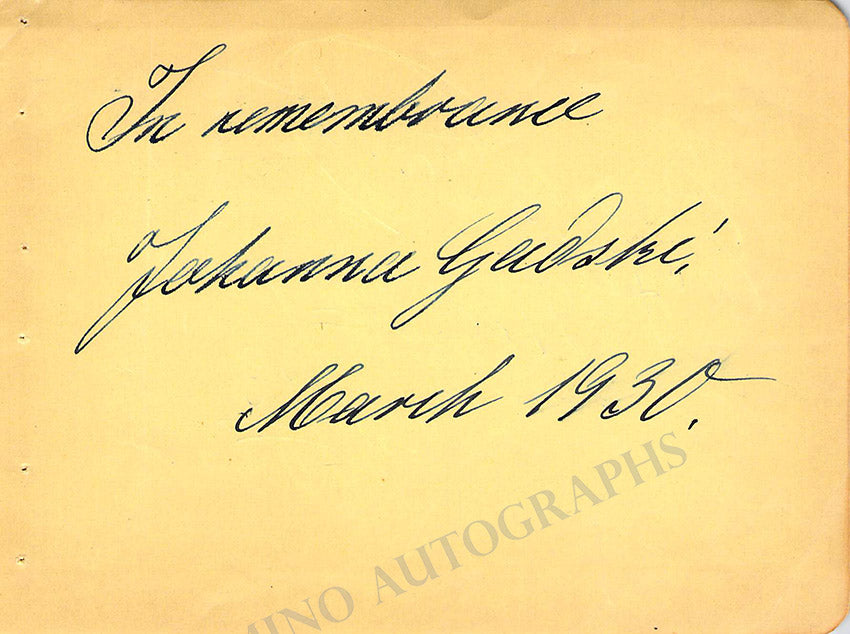 In remembrance
Johanna Gadski.
March 1930.
MINO AUTOGRAPHS